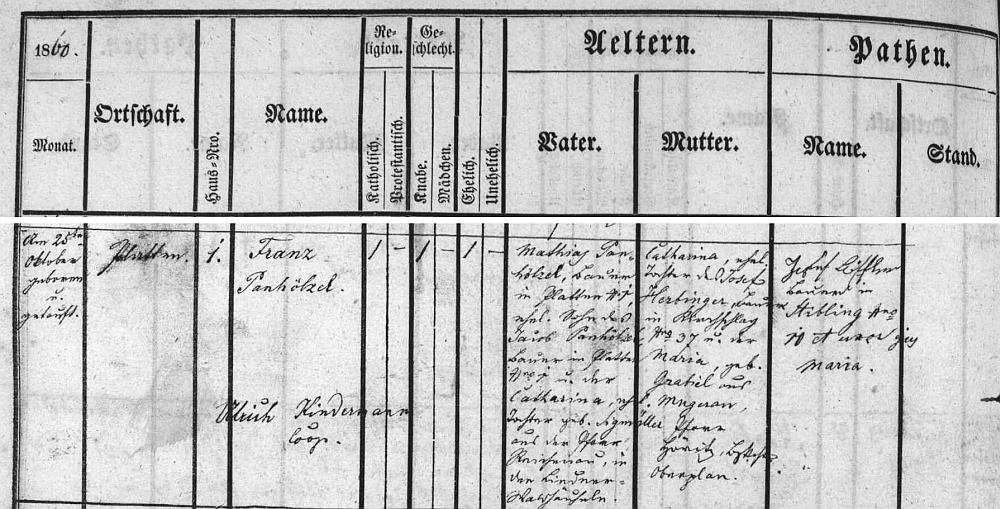 1860.
Monat.
Ortschaft.
Haus-Nro.
Name.
Religion.
Katholisch.
Protestantisch.
Geschlecht.
Knabe.
Mädchen.
Ehelich.
Unehelich.
Aeltern.
Vater.
Mutter.
Pathen.
Name.
Stand.
Am 25ten
Oktober
geboren
u.
getauft.
Platten.
1.
Franz
Panhölzel.
1 – 1 – 1 –
Ulrich Kindermann
Coop.
Mathias Pan-
hölzel, Bauer
in Platten No 1,
ehel. Sohn des
Jacob Panhölzel,
Bauer in Platten
No 1 u. der
Catharina, ehel.
Tochter geb.
aus der Pfarr
Reichenau, in
den Lindner-
Waldhäuseln.
Catharina, ehel.
Tochter des Josef
Herbinger, Bauer
in Kirchschlag
No 37 u. der
Maria, geb.
Grabiel aus
Mugerau,
Pfarr
Höritz,
Oberplan.
Josef Löffler
Bauer in
Stibling No
10 et uxor ejus
Maria.